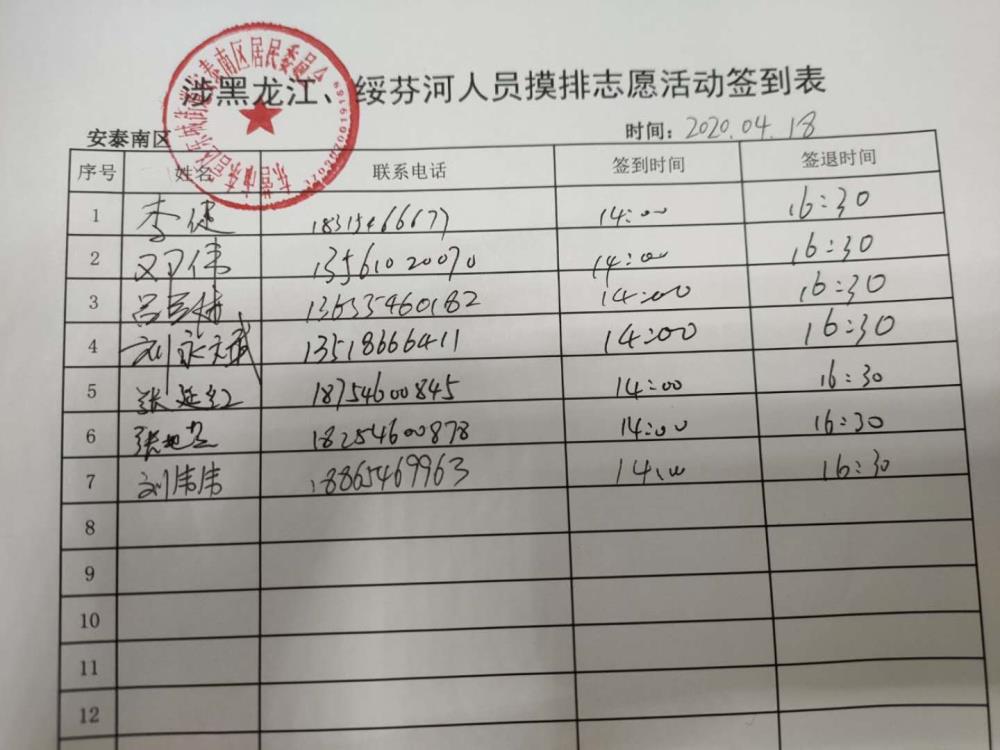 涉黑龙江、绥芬河人员摸排志愿活动签到表
安泰南区 时间：2020.04.18
序号 姓名 联系电话 签到时间 签退时间
1 李健 14:00 16:30
2 邓伟 13561020070 14:00 16:30
3 13635460182 14:00 16:30
4 刘 13518666411 14:00 16:30
5 张延红 18754600845 14:00 16:30
6 张 18254600878 14:00 16:30
7 刘伟伟 18865469963 14:00 16:30
8
9
10
11
12